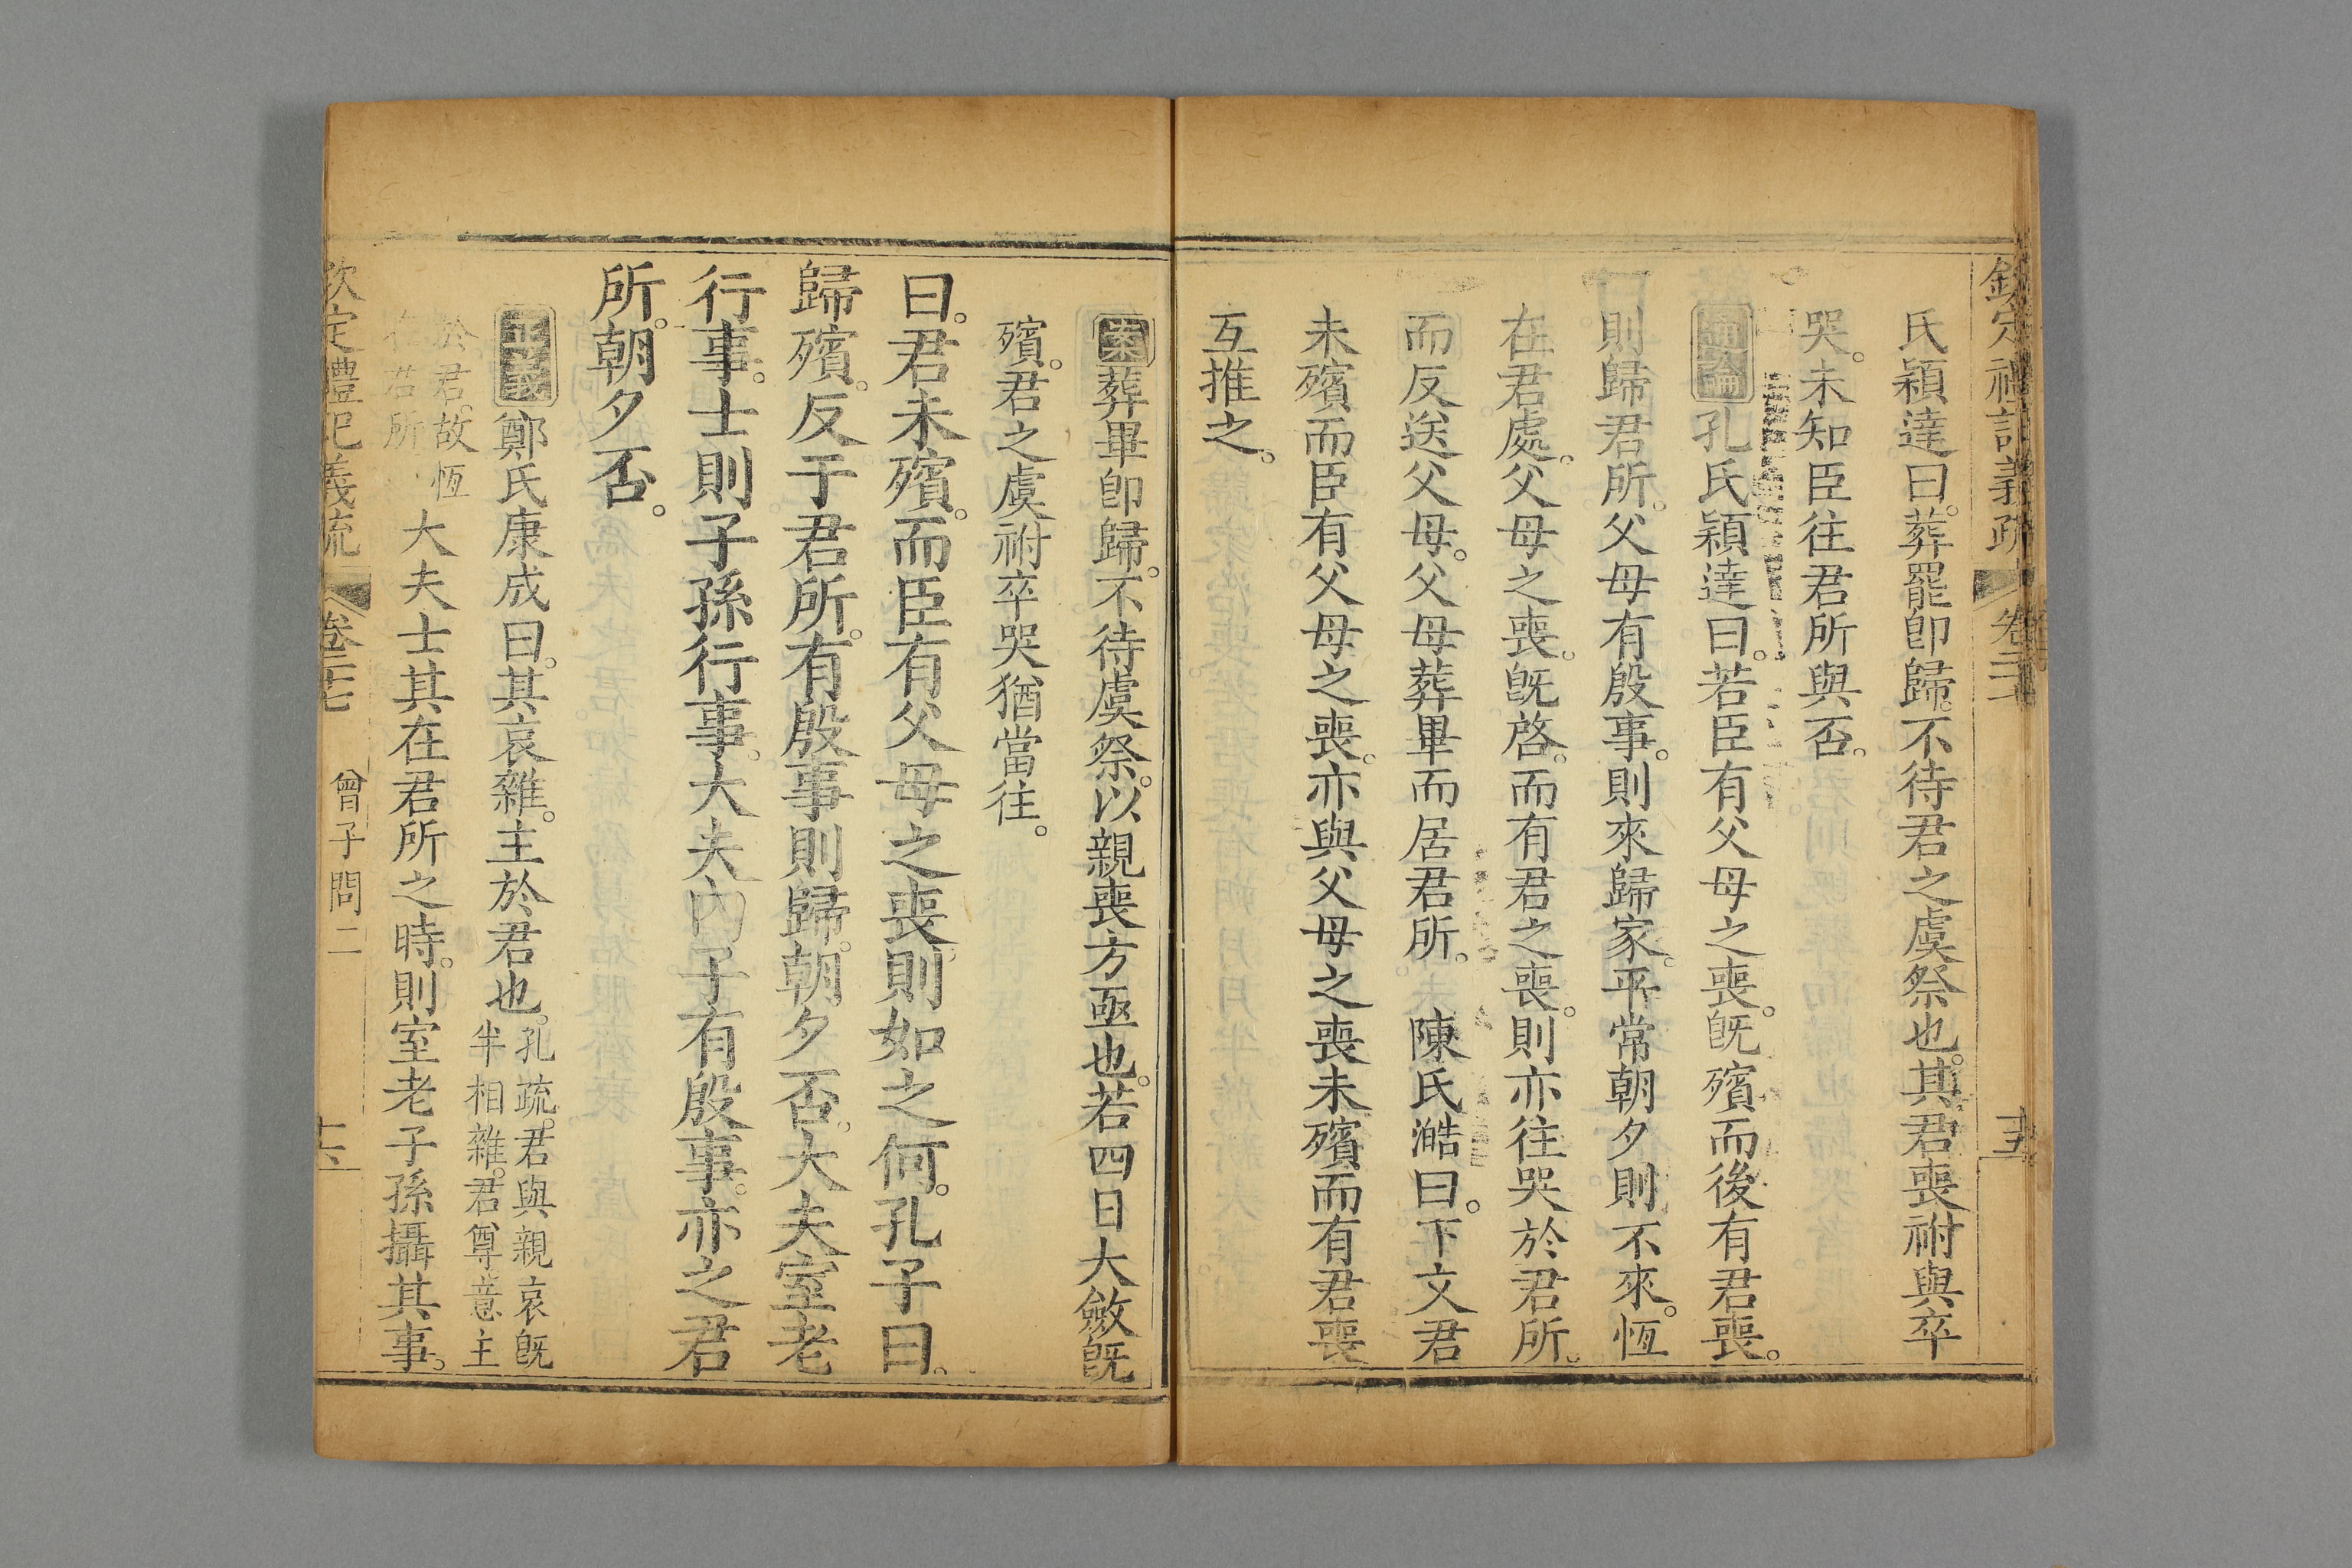 欽定禮記義疏 卷二十七 十五
氏穎達曰。葬罷卽歸。不待君之虞祭也。其君喪祔與卒
哭。未知臣往君所與否。
通論 孔氏穎達曰。若臣有父母之喪。旣殯而後有君喪。
則歸君所。父母有殷事。則來歸家。平常朝夕則不來。恆
在君處。父母之喪。旣啓。而有君之喪。則亦往哭於君所。
而反送父母。父母葬畢而居君所。 陳氏澔曰。下文君
未殯而臣有父母之喪。亦與父母之喪未殯而有君喪
互推之。
案 葬畢卽歸。不待虞祭。以親喪方亟也。若四日大斂旣
殯。君之虞祔卒哭。猶當往。
曰。君未殯。而臣有父母之喪。則如之何。孔子曰。
歸殯。反于君所。有殷事則歸。朝夕否。大夫室老
行事。士則子孫行事。大夫內子有殷事。亦之君
所。朝夕否。
正義 鄭氏康成曰。其哀雜。主於君也。孔疏。君與親哀旣
半相雜。君尊。意主
於君。故恆
在君所
大夫士其在君所之時。則室老子孫攝其事。
欽定禮記義疏 卷二十七 曾子問二 十六